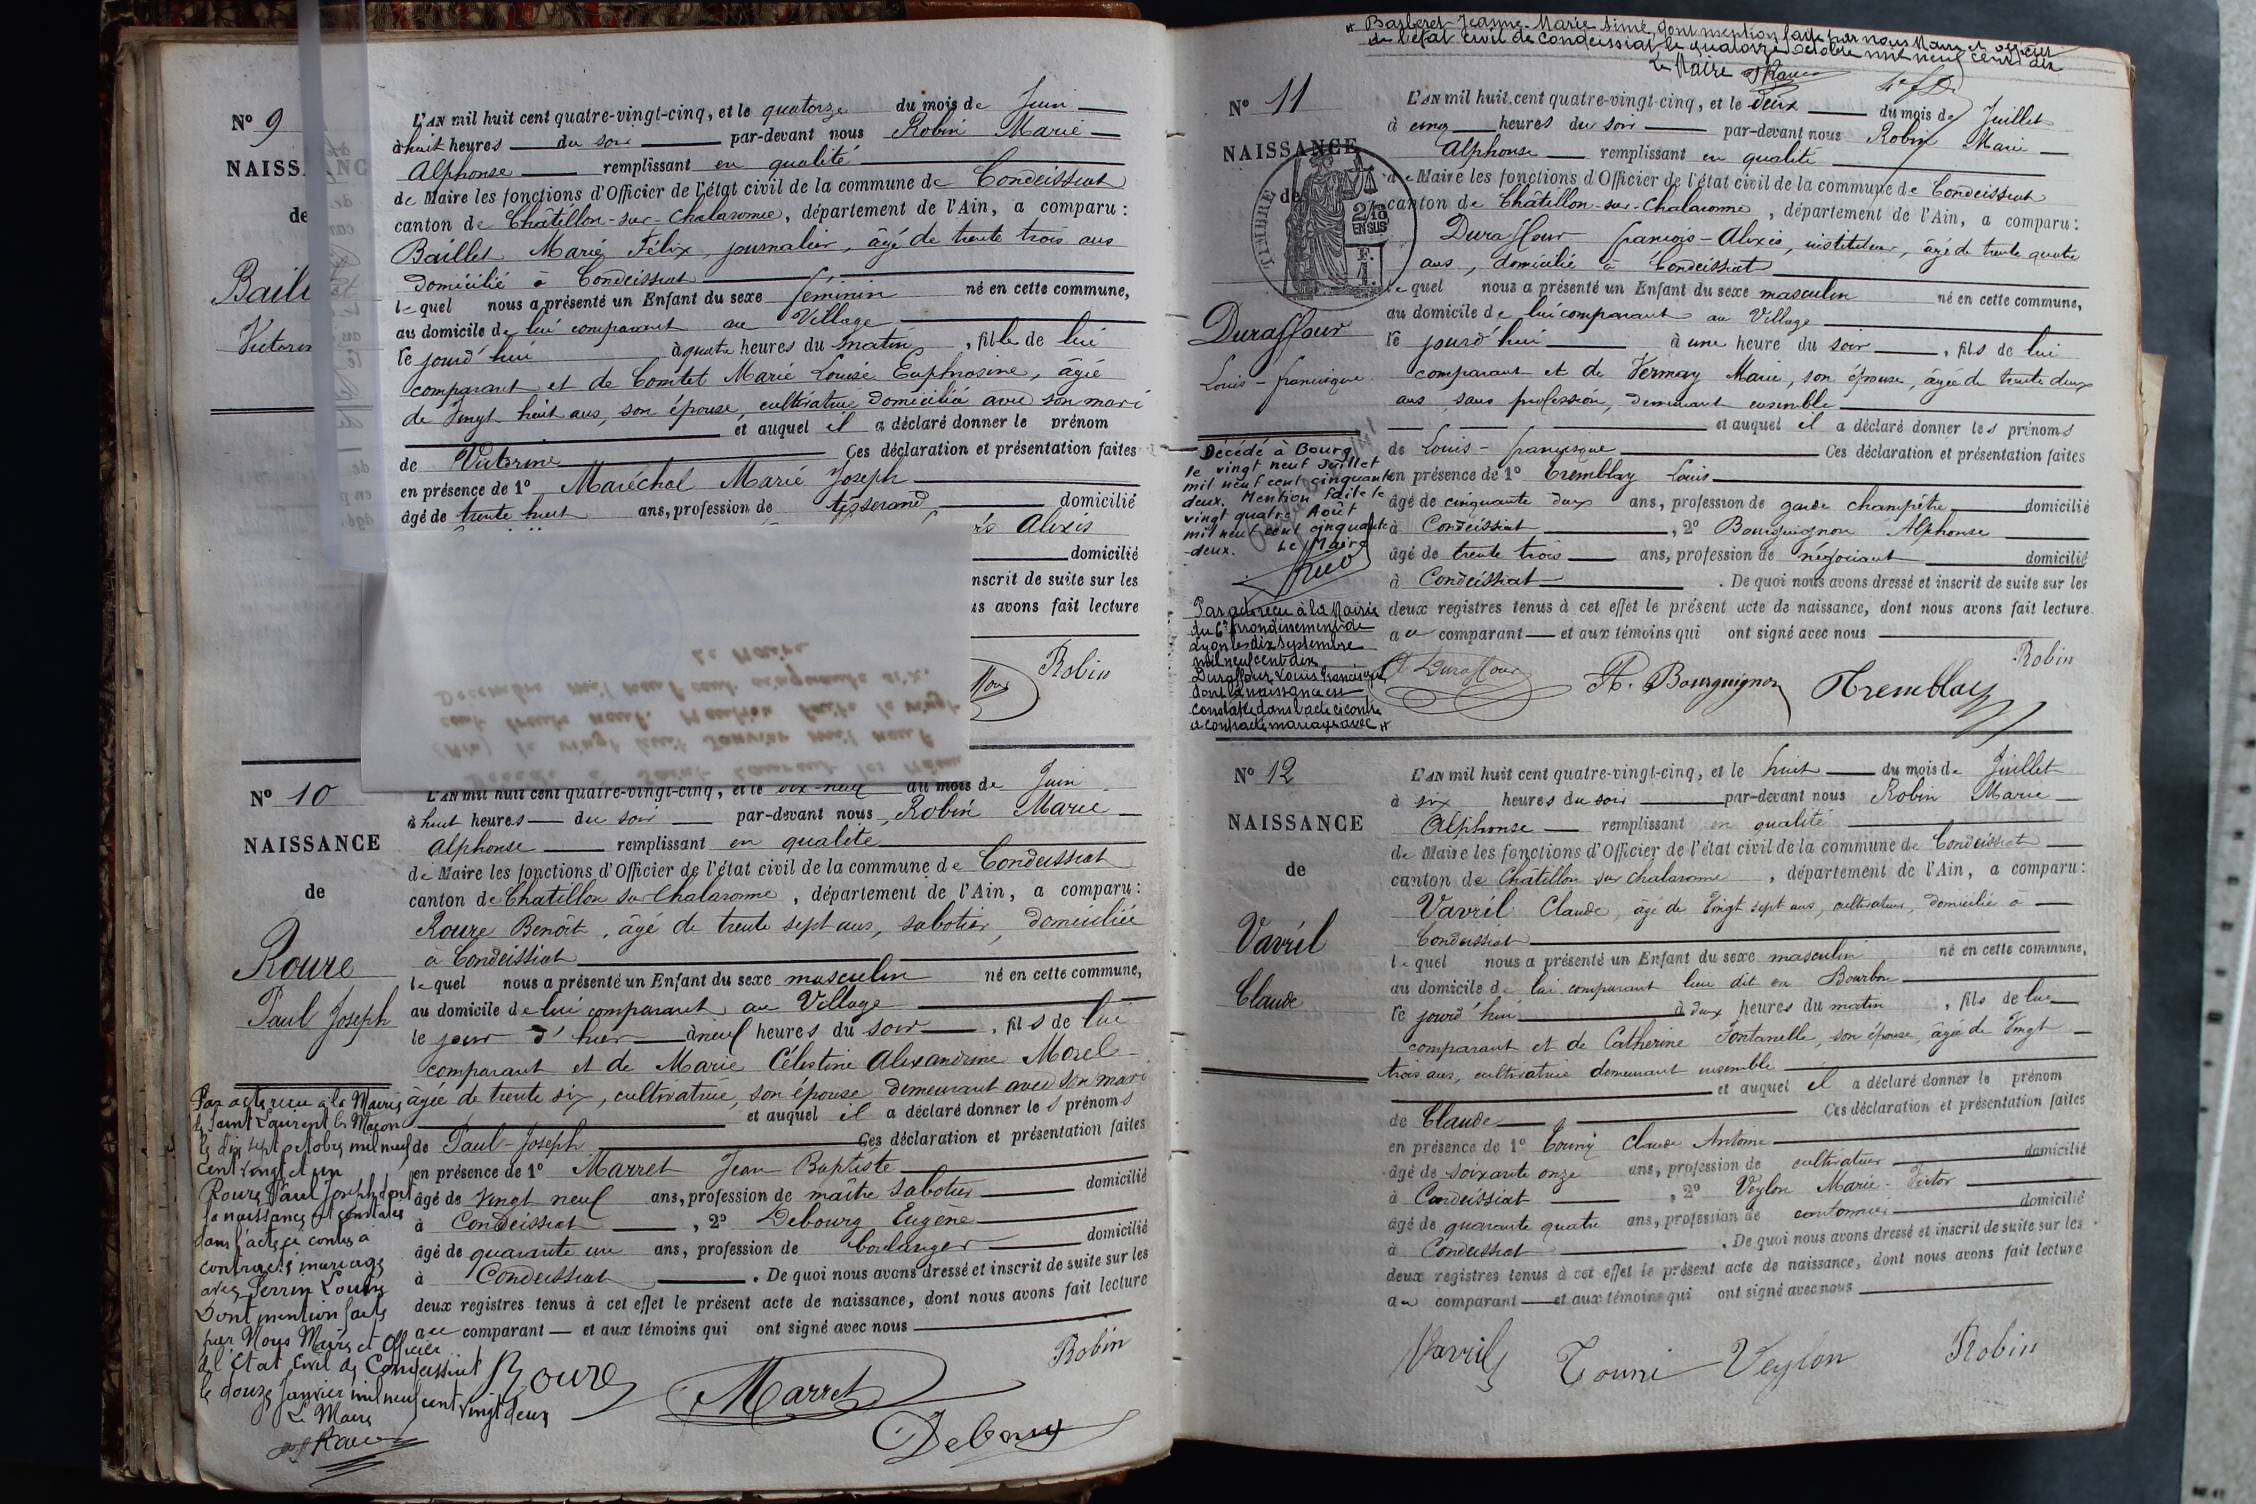 N° 9
NAISSANC
de
Baill
Victorin
L'AN mil huit cent quatre-vingt-cinq, et le quatorze du mois de Juin
à huit heures du soir par-devant nous Robin Marie
Alphonse remplissant en qualité
de Maire les fonctions d'Officier de l'état civil de la commune de Condeissiat
canton de Châtillon-sur-Chalaronne, département de l'Ain, a comparu :
Baillet Marie Félix, journalier, âgé de trente trois ans
domicilié à Condeissiat
lequel nous a présenté un Enfant du sexe féminin né en cette commune,
au domicile de lui comparant au Village
le jourd'hui à quatre heures du matin, fille de lui
comparant et de Comtet Marie Louise Euphrosine, âgée
de vingt huit ans, son épouse, cultivatrice domiciliée avec son mari
et auquel il a déclaré donner le prénom
de Victorine Ces déclaration et présentation faites
en présence de 1° Maréchal Marie Joseph
âgé de trente huit ans, profession de tisserand domicilié
Alexis
domicilié
nscrit de suite sur les
us avons fait lecture
Robin
Le Maire
Décembre mil neuf cent cinquante six.
cent trente neuf. Mention faite le vingt
(Ain) le vingt huit Janvier mil neuf
Décédé à Saint Laurent les Mâcon
N° 10
NAISSANCE
de
Roure
Paul Joseph
L'AN mil huit cent quatre-vingt-cinq, et le dix-neuf du mois de Juin
à huit heures du soir par-devant nous Robin Marie
Alphonse remplissant en qualité
de Maire les fonctions d'Officier de l'état civil de la commune de Condeissiat
canton de Chatillon sur Chalaronne, département de l'Ain, a comparu :
Roure Benoît, âgé de trente sept ans, sabotier, domicilié
à Condeissiat
lequel nous a présenté un Enfant du sexe masculin né en cette commune,
au domicile de lui comparant au Village
le jour d'hier à neuf heures du soir, fils de lui
comparant et de Marie Célestine Alexandrine Morel
âgée de trente six, cultivatrice, son épouse demeurant avec son mari
et auquel il a déclaré donner les prénoms
de Paul-Joseph Ces déclaration et présentation faites
en présence de 1° Marret Jean Baptiste
âgé de vingt neuf ans, profession de maître sabotier domicilié
à Condeissiat, 2° Debourg Eugène
âgé de quarante un ans, profession de boulanger domicilié
à Condeissiat. De quoi nous avons dressé et inscrit de suite sur les
deux registres tenus à cet effet le présent acte de naissance, dont nous avons fait lecture
au comparant et aux témoins qui ont signé avec nous
Robin
Roure Marret
Debourg
Par acte reçu à la Mairie
de Saint Laurent les Macon
le dix sept octobre mil neuf
cent vingt et un
Roure Paul Joseph dont
la naissance est constatée
dans l'acte ci contre a
contracté mariage
avec Perrin Louise
Dont mention faite
par Nous Maire et Officier
de l'état civil de Condeissiat
le douze Janvier mil neuf cent vingt deux
Le Maire
* Barberet Jeanne-Marie Aimé, dont mention faite par nous Maire et officier
de l'état civil de Condeissiat le quatorze octobre mil neuf cent dix
Le Maire
N° 11
NAISSANCE
de
TIMBRE
2/10
EN SUS
F.
Duraffour
Louis-francisque
L'AN mil huit cent quatre-vingt-cinq, et le deux du mois de Juillet
à cinq heures du soir par-devant nous Robin Marie
Alphonse remplissant en qualité
de Maire les fonctions d'Officier de l'état civil de la commune de Condeissiat
canton de Châtillon-sur-Chalaronne, département de l'Ain, a comparu :
Duraffour françois-Alexis, instituteur, âgé de trente quatre
ans, domicilié à Condeissiat
lequel nous a présenté un Enfant du sexe masculin né en cette commune,
au domicile de lui comparant au Village
le jourd'hui à une heure du soir, fils de lui
comparant et de Vermay Marie, son épouse, âgée de trente deux
ans, sans profession, demeurant ensemble
et auquel il a déclaré donner les prénoms
de Louis-françisque Ces déclaration et présentation faites
en présence de 1° Tremblay Louis
âgé de cinquante deux ans, profession de garde champêtre domicilié
à Condeissiat, 2° Bourguignon Alphonse
âgé de trente trois ans, profession de négociant domicilié
à Condeissiat. De quoi nous avons dressé et inscrit de suite sur les
deux registres tenus à cet effet le présent acte de naissance, dont nous avons fait lecture
au comparant et aux témoins qui ont signé avec nous
Robin
Duraffour A. Bourguignon Tremblay
Décédé à Bourg
le vingt neuf Juillet
mil neuf cent cinquante
deux. Mention faite le
vingt quatre Août
mil neuf cent cinquante
-deux. Le Maire
Par acte reçu à la Mairie
du 6e arrondissement de
Lyon le dix Septembre
mil neuf cent dix
Duraffour Louis Francisque
dont la naissance est
constatée dans l'acte ci contre
a contracté mariage avec *
N° 12
NAISSANCE
de
Vavril
Claude
L'AN mil huit cent quatre-vingt-cinq, et le huit du mois de Juillet
à six heures du soir par-devant nous Robin Marie
Alphonse remplissant en qualité
de Maire les fonctions d'Officier de l'état civil de la commune de Condeissiat
canton de Châtillon sur Chalaronne, département de l'Ain, a comparu :
Vavril Claude, âgé de vingt sept ans, cultivateur, domicilié à
Condeissiat
lequel nous a présenté un Enfant du sexe masculin né en cette commune,
au domicile de lui comparant lieu dit en Bourbon
le jourd'hui à deux heures du matin, fils de lui
comparant et de Catherine Fontanelle, son épouse, âgée de vingt
trois ans, cultivatrice demeurant ensemble
et auquel il a déclaré donner le prénom
de Claude Ces déclaration et présentation faites
en présence de 1° Tourni Claude Antoine
âgé de soixante onze ans, profession de cultivateur domicilié
à Condeissiat, 2° Veylon Marie-Victor
âgé de quarante quatre ans, profession de cantonnier domicilié
à Condeissiat. De quoi nous avons dressé et inscrit de suite sur les
deux registres tenus à cet effet le présent acte de naissance, dont nous avons fait lecture
au comparant et aux témoins qui ont signé avec nous
Vavril Tourni Veylon Robin